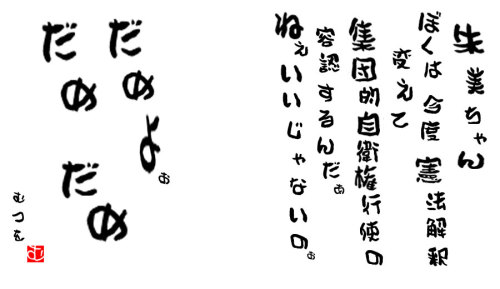 朱美ちゃん
ぼくは今度憲法解釈
変えて
集団的自衛権行使の
容認するんだぁ
ねぇいいじゃないのぉ
だめよぉ
だめ
だめ
むつを
む